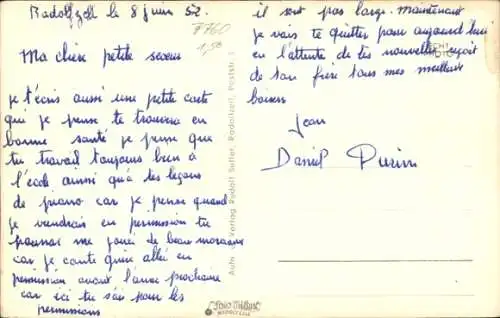 Radolfzell le 8 juin 52.
7760
1,50
Ma chère petite soeur
je t'écris aussi une petite carte
qui je pense te trouvera en
bonne santé je pense que
tu travail toujours bien à
l'école ainsi qu'à tes leçons
de piano car je pense quand
je viendrais en permission tu
pourras me jouée de beau morceaux
car je conte qu'ire allée en
permission avant l'anné prochaine
car ici tu sais pour les
permissions
il sont pas large. maintenant
je vais te quitter pour aujourd'hui
en l'attente de tes nouvelles reçoit
de ton frère tous mes meilleur
baisers
Jean
Daniel
Verlag Rudolf Sutter, Radolfzell, Poststr.